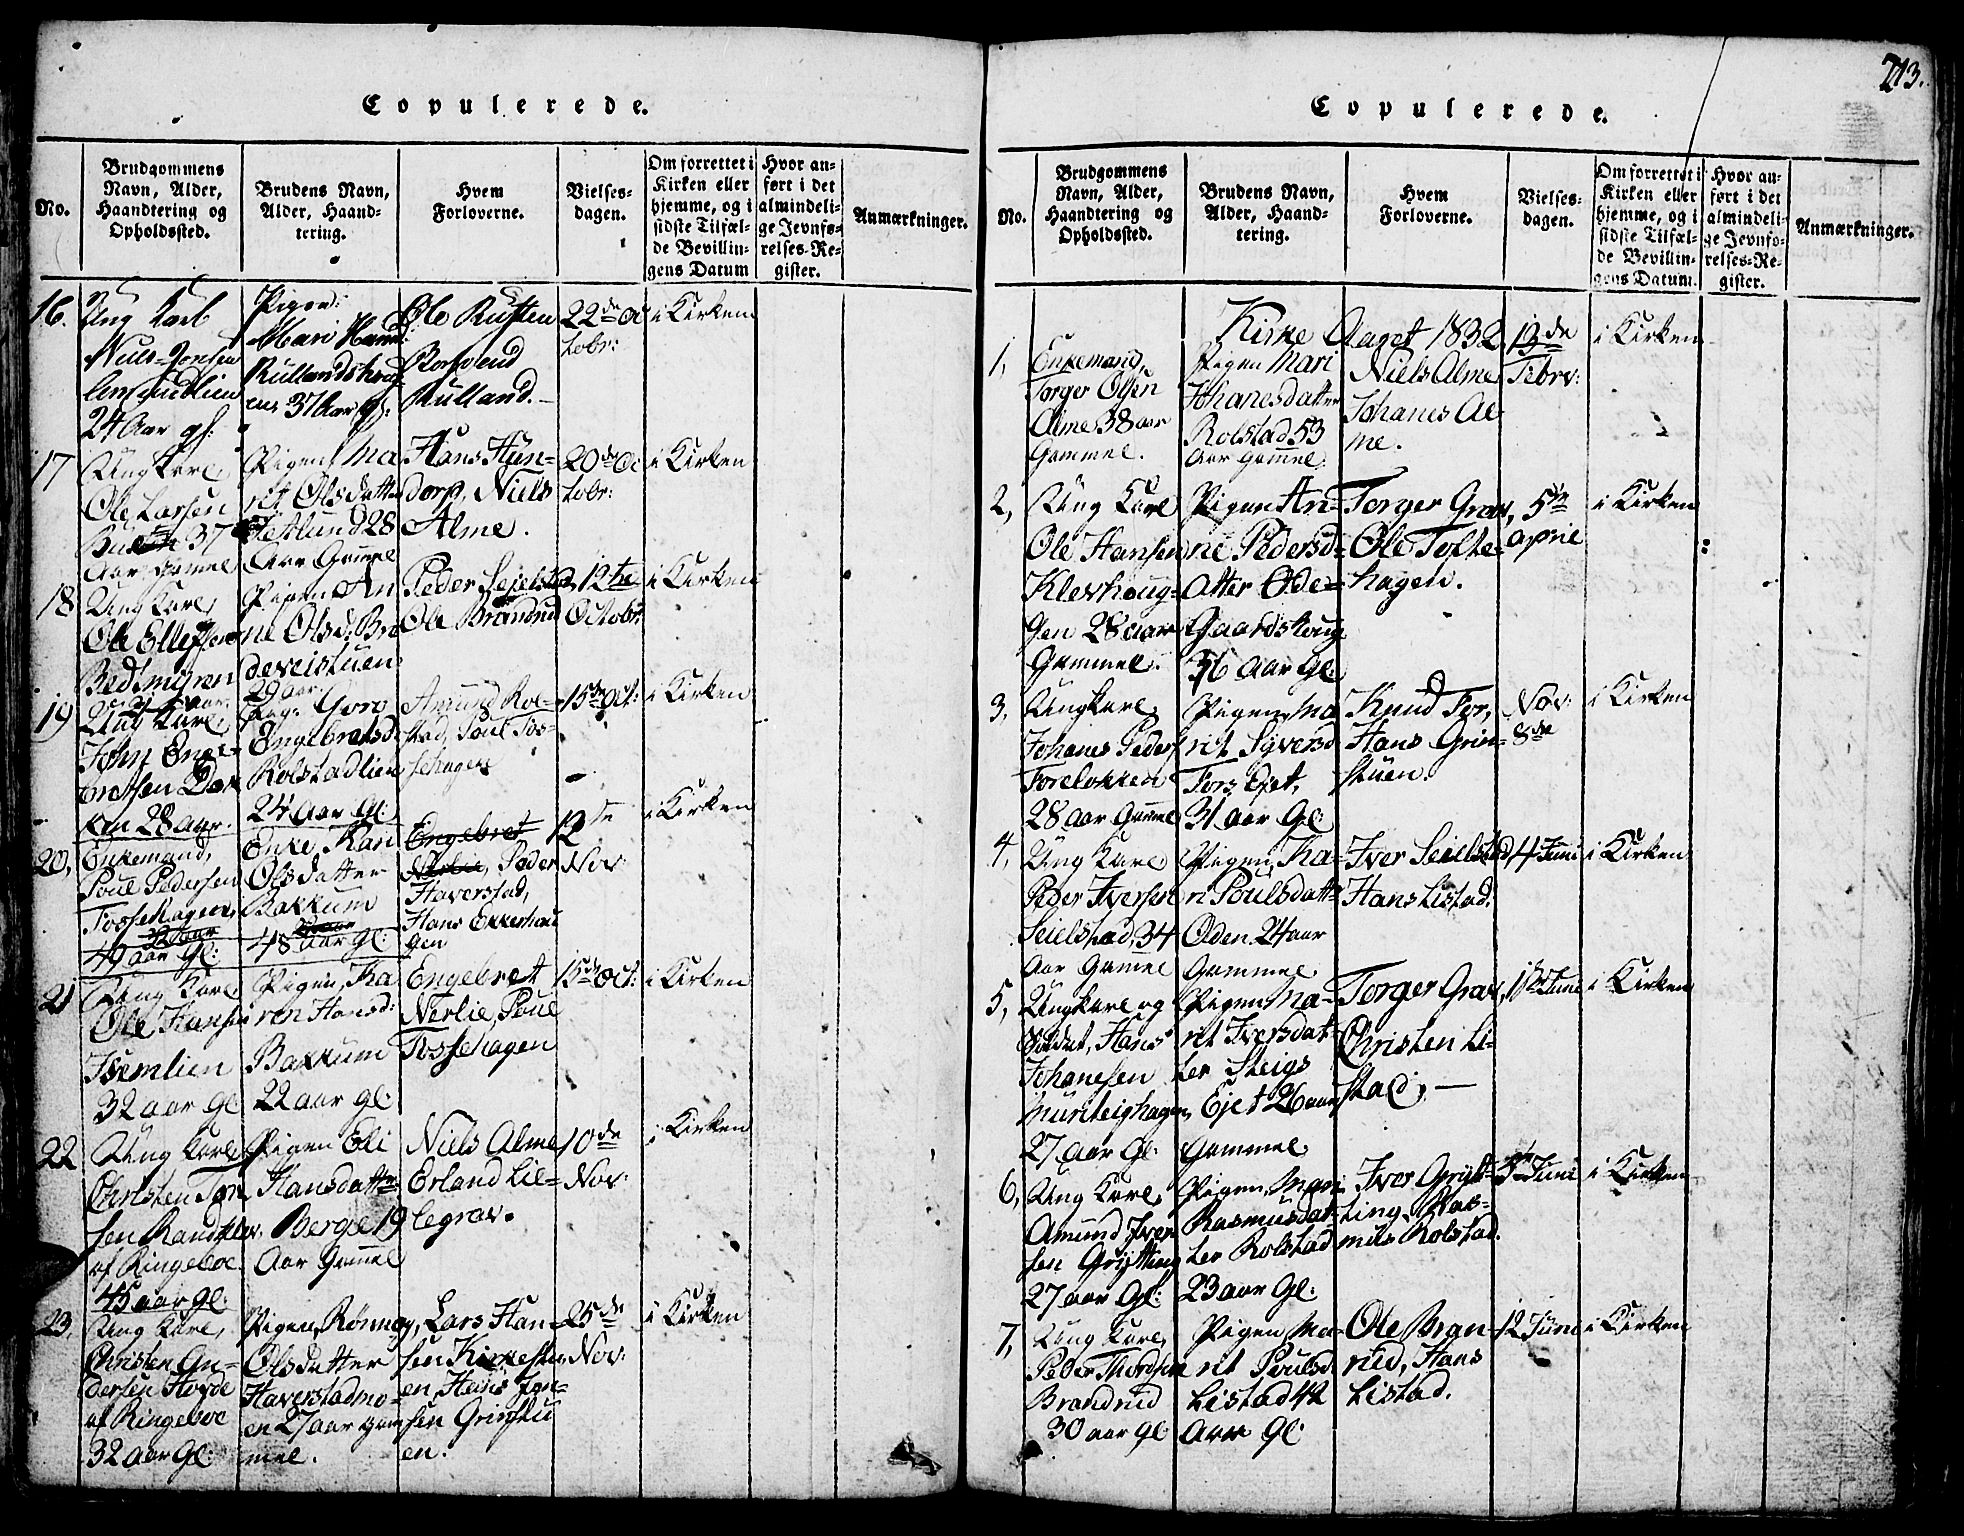 Copulerede.
No.
Brudgommens
Navn, Alder,
Haandtering og
Opholdssted.
Brudens Navn,
Alder, Haand-
tering.
Hvem
Forloverne.
Vielses-
dagen.
Om forrettet i
Kirken eller
hjemme, og i
sidste Tilfæl-
de Bevillin-
gens Datum
Hvor an-
ført i det
almindeli-
ge Jevnfø-
relses-Re-
gister.
Anmærkninger.
16.
Ung Karl
Niels Jonsen
24 Aar gl:
Pigen
Mari Hans:
Rullandshoug
en 37 Aar gl:
Ole Rusten
Rulland.
22de Oc
tobr:
i Kirken
17
Ung Karl
Ole Larsen
37
Aar Gamel
Pigen Ma
rit Olsdatter
28
Aar Gamel
Hans Hun-
dorp, Niels
Alme.
20de Oc
tobr:
i Kirken
18
Ung Karl
Ole Ellefsen
Pigen An
ne Olsd. Bra
deveistuen
29 aar.
Peder Seielstad
Ole Brandrud
12te
Octobr:
i Kirken
19
Ung Karl
John Enge-
bretsen
ken 28 aar.
Pig: Goro
Engebretsd
Rolstadlien
24 Aar Gl:
Amund Rol-
stad, Poul Tos-
sehagen
15de Oct:
i Kirken
20,
Enkemand,
Poul Pedersen
Tossehagen,
49 aar Gl:
Enke Kari
Olsdatter
Bakkum
48 aar gl:
Engebret
Nerlie, Peder
Haverstad,
Hans Ekkerhou
gen
12te
Nov:
i Kirken
21
Ung Karl
Ole Hansen
32 aar Gl:
Pigen, Ka
ren Hansd:
Bakkum
22 aar gl:
Engebret
Nerlie, Poul
Tossehagen
15de Oct:
i Kirken
22
Ung Karl
Christen Tor
sen Randklev
af Ringeboe
45 aar gl:
Pigen Eli
Hansdatter
Berge 19
Aar Gamel
Niels Alme
Erland Lil-
legrav.
10de
Nov:
i Kirken
23,
Ung Karl,
Christen An-
dersen Hovde
af Ringeboe
32 aar Gl:
Pigen, Rønnog,
Olsdatter
Haverstadmo-
en 27 aar gam
mel.
Lars Han-
sen Kirkestu
en, Hans Jon-
sen Grinstu
en:
25de
Nov:
i Kirken
213.
Copulerede.
No.
Brudgommens
Navn, Alder,
Haandtering og
Opholdssted.
Brudens Navn,
Alder, Haand-
tering.
Hvem
Forloverne.
Vielses-
dagen.
Om forrettet i
Kirken eller
hjemme, og i
sidste Tilfæl-
de Bevillin-
gens Datum.
Hvor an-
ført i det
almindeli-
ge Jevnfø-
relses-Re-
gister.
Anmærkninger.
Kirke Aaret 1832
1,
Enkemand,
Torger Olsen
Alme 38 aar
Gammel.
Pigen Mari
Johanesdatter
Rolstad 53
Aar Gamel.
Niels Alme
Johanes Al
me.
13de
Febr:
i Kirken
2,
Ung Karl
Ole Hansen
Klevhoug-
gen 28 aar
Gammel.
Pigen An-
ne Pedersd-
atter Øde-
Gaardshoug
36 aar Gl:
Torger Grav,
Ole Tofte-
hagen.
5te
april
i Kirken
3,
Ungkarl,
Johanes Peders
Foreløkken
28 aar Gamel
Pigen, Ma
rit Syversd
Fors Ejet,
31 aar Gl:
Knud For,
Hans Grin-
stuen.
Nov:
8de
i Kirken
4,
Ung Karl
Peder Iversen
Seielstad, 34
Aar Gamel
Pigen, Ka-
ri Poulsdatt:
Oden 24 aar
Gammel
Iver Seielstad
Hans Listad.
4 Juni
i Kirken
5,
Ungkarl og
Soldat, Hans
Johanesen
27 aar Gl:
Pigen, Ma-
rit Iversdat-
ter Steigs
Ejet 26 aar
Gammel
Torger Grav,
Christen Li-
stad, —
Juni
i Kirken
6,
Ung Karl,
Amund Iver
sen Grytting
27 aar Gl:
Pigen, Mari
Rasmusdat-
ter Rolstad
23 aar Gl:
Iver Gryt-
ting, Ras-
mus Rolstad.
Juni
i Kirken
7,
Ung Karl,
Peder Thordsen
Brandrud
30 aar gl:
Pigen Ma-
rit Poulsd
Listad 42
Aar Gl:
Ole Bran-
rud, Hans
Listad.
12 Juni
i Kirken